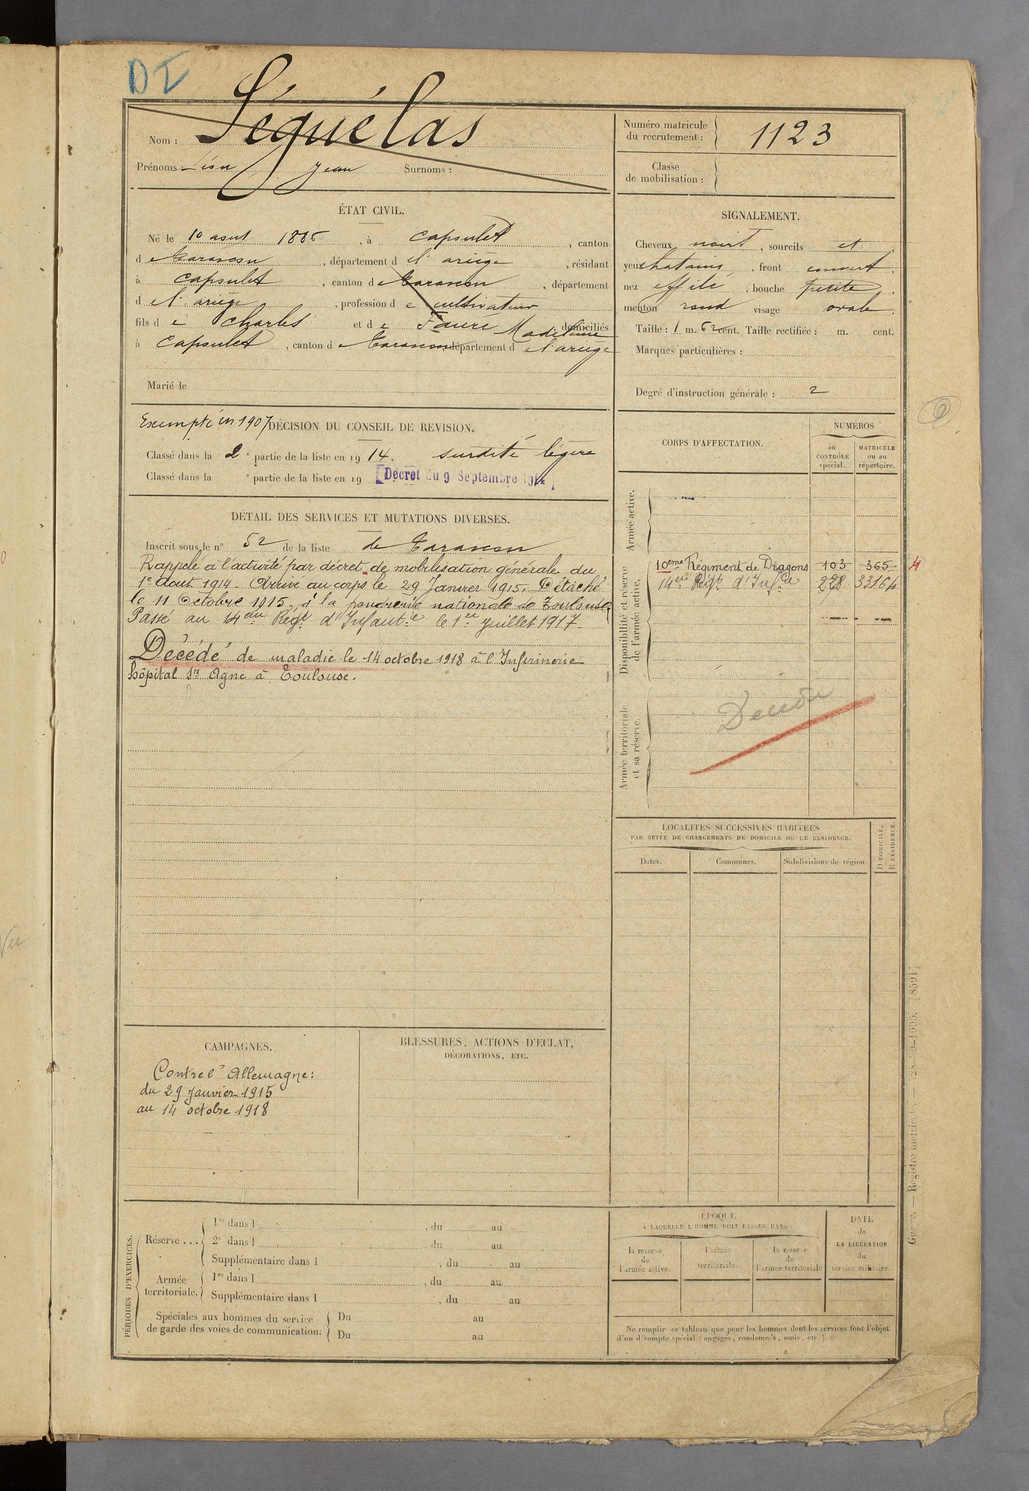 DI
Nom : Séguélas
Prénoms : Jean Surnoms :
Numéro matricule
du recrutement : 1123
Classe
de mobilisation :
ÉTAT CIVIL.
Né le 10 aout 1886, à Capoulet, canton
de Tarascon, département de l'ariège, résidant
à Capoulet, canton de Tarascon, département
de l'ariège, profession de cultivateur
fils de Charles et de Faure Madeleine domiciliés
à Capoulet, canton de Tarascon département de l'ariège
Marié le
SIGNALEMENT.
Cheveux noirs, sourcils et
yeux chatains, front couvert
nez effilé, bouche petite
menton rond visage ovale
Taille : 1 m. 62 cent. Taille rectifiée : m. cent.
Marques particulières :
Degré d'instruction générale : 2
Exempté en 1907 DÉCISION DU CONSEIL DE REVISION.
Classé dans la 2e partie de la liste en 1914. surdité légère
Classé dans la e partie de la liste en 19 Décret du 9 Septembre 1914
DÉTAIL DES SERVICES ET MUTATIONS DIVERSES.
Inscrit sous le n° 52 de la liste de Tarascon
Rappelé à l'activité par décret de mobilisation générale du
1er Aout 1914. Arrivé au corps le 29 Janvier 1915. Détaché
le 11 Octobre 1915, à la poudrerie nationale de Toulouse.
Passé au 14eme Régt d'Infanterie le 1er juillet 1917.
Décédé de maladie le 14 octobre 1918 à l'Infirmerie
hôpital St Agne à Toulouse.
CORPS D'AFFECTATION.
NUMÉROS
au
CONTRÔLE
spécial.
MATRICULE
ou au
répertoire.
Armée active.
Disponibilité et réserve
de l'armée active,
10eme Régiment de Dragons 103 365 4
14e Régt d'Infie 228
Armée territoriale
et sa réserve.
LOCALITÉS SUCCESSIVES HABITÉES
PAR SUITE DE CHANGEMENTS DE DOMICILE OU DE RÉSIDENCE.
Dates.
Communes.
Subdivisions de région.
D DOMICILE.
R RÉSIDENCE.
CAMPAGNES.
Contre l'Allemagne :
du 29 Janvier 1915
au 14 octobre 1918
BLESSURES, ACTIONS D'ÉCLAT,
DÉCORATIONS, ETC.
PÉRIODES D'EXERCICES.
Réserve ...
1re dans l , du au
2e dans l , du au
Supplémentaire dans l , du au
Armée
territoriale.
1re dans l , du au
Supplémentaire dans l , du au
Spéciales aux hommes du service
de garde des voies de communication :
Du au
Du au
ÉPOQUE
À LAQUELLE L'HOMME DOIT PASSER DANS
la réserve
de
l'armée active.
l'armée
territoriale.
la réserve
de
l'armée territoriale
DATE
de
LA LIBÉRATION
du
service militaire.
Ne remplir ce tableau que pour les hommes dont les services font l'objet
d'un décompte spécial (engagés, condamnés, omis, etc.).